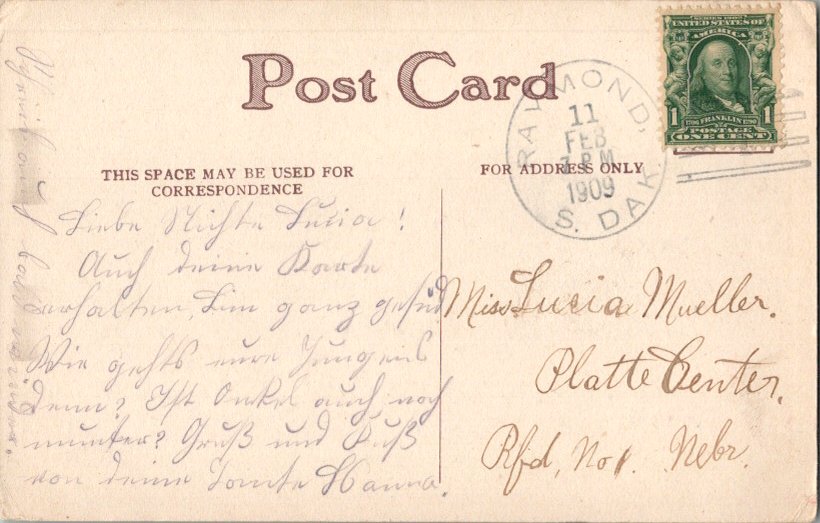 Post Card
THIS SPACE MAY BE USED FOR
CORRESPONDENCE
FOR ADDRESS ONLY
SERIES 1902
UNITED STATES OF
AMERICA
1 1706 FRANKLIN 1790 1
POSTAGE
ONE CENT
RAYMOND,
11
FEB
7 P.M.
1909
S. DAK.
Liebe Nichte Lucia!
Auch deine Karte
erhalten, bin ganz gesund
Wie gehts eure Jungens
denn? Ist Onkel auch noch
munter? Gruß und Kuß
von deine Tante Hanna.
Schreib bald
Miss Lucia Mueller.
Platte Center,
Rfd, No 1. Nebr.